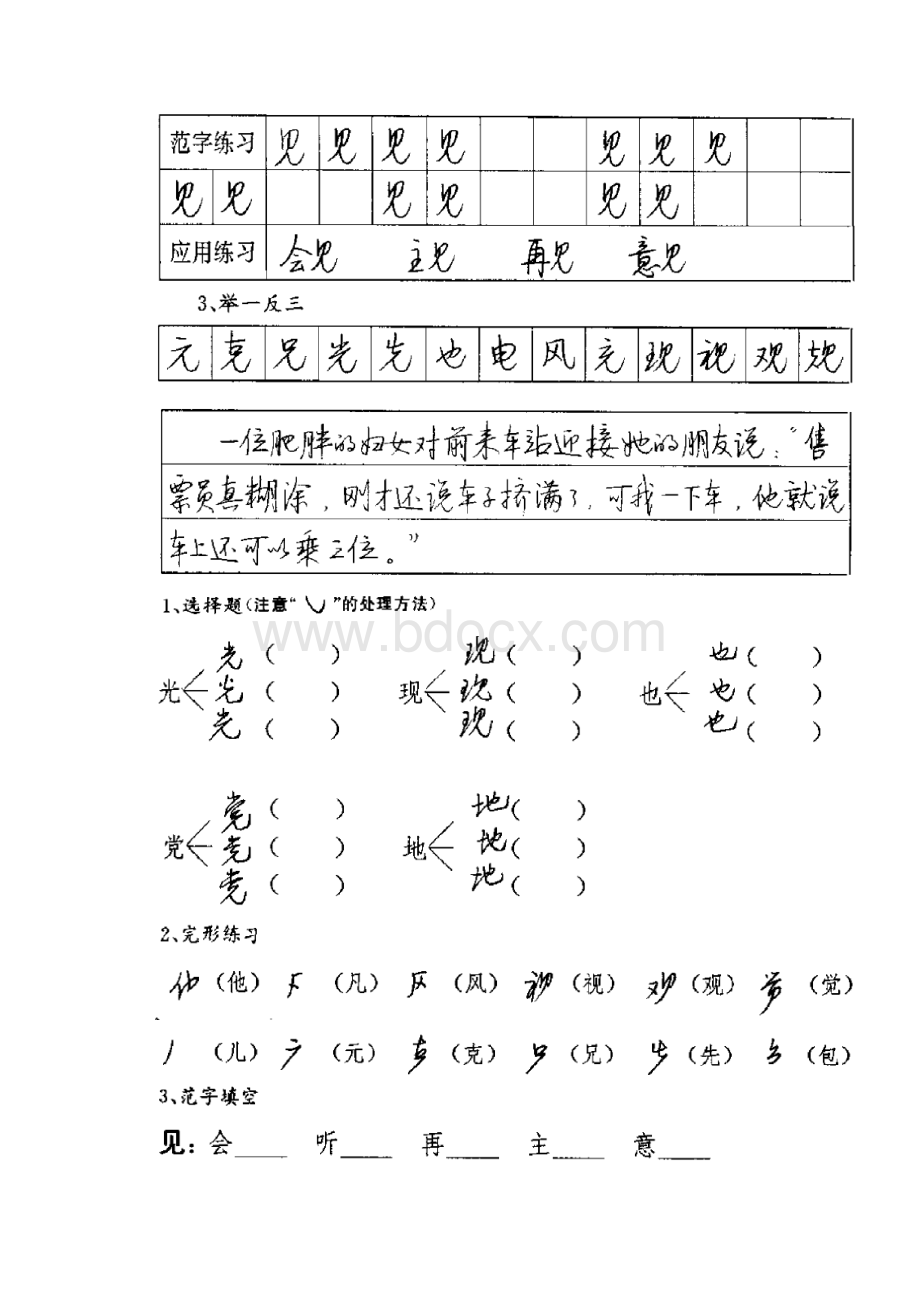 范字练习 见 见 见 见 见 见 见
见 见 见 见 见 见
应用练习 会见 主见 再见 意见
3、举一反三
元 克 兄 光 先 也 电 风 充 现 视 观 规
一位肥胖的妇女对前来车站迎接她的朋友说：“售
票员真糊涂，刚才还说车子挤满了，可我一下车，他就说
车上还可以乘三位。”
1、选择题（注意“㇃”的处理方法）
www.bdocx.com
光 光（ ） 现 现（ ） 也 也（ ）
光（ ） 现（ ） 也（ ）
光（ ） 现（ ） 也（ ）
党 党（ ） 地 地（ ）
党（ ） 地（ ）
党（ ） 地（ ）
2、完形练习
（他） （凡） （风） （视） （观） （觉）
（儿） （元） （克） （兄） （先） （包）
3、范字填空
见：会____ 听____ 再____ 主____ 意____